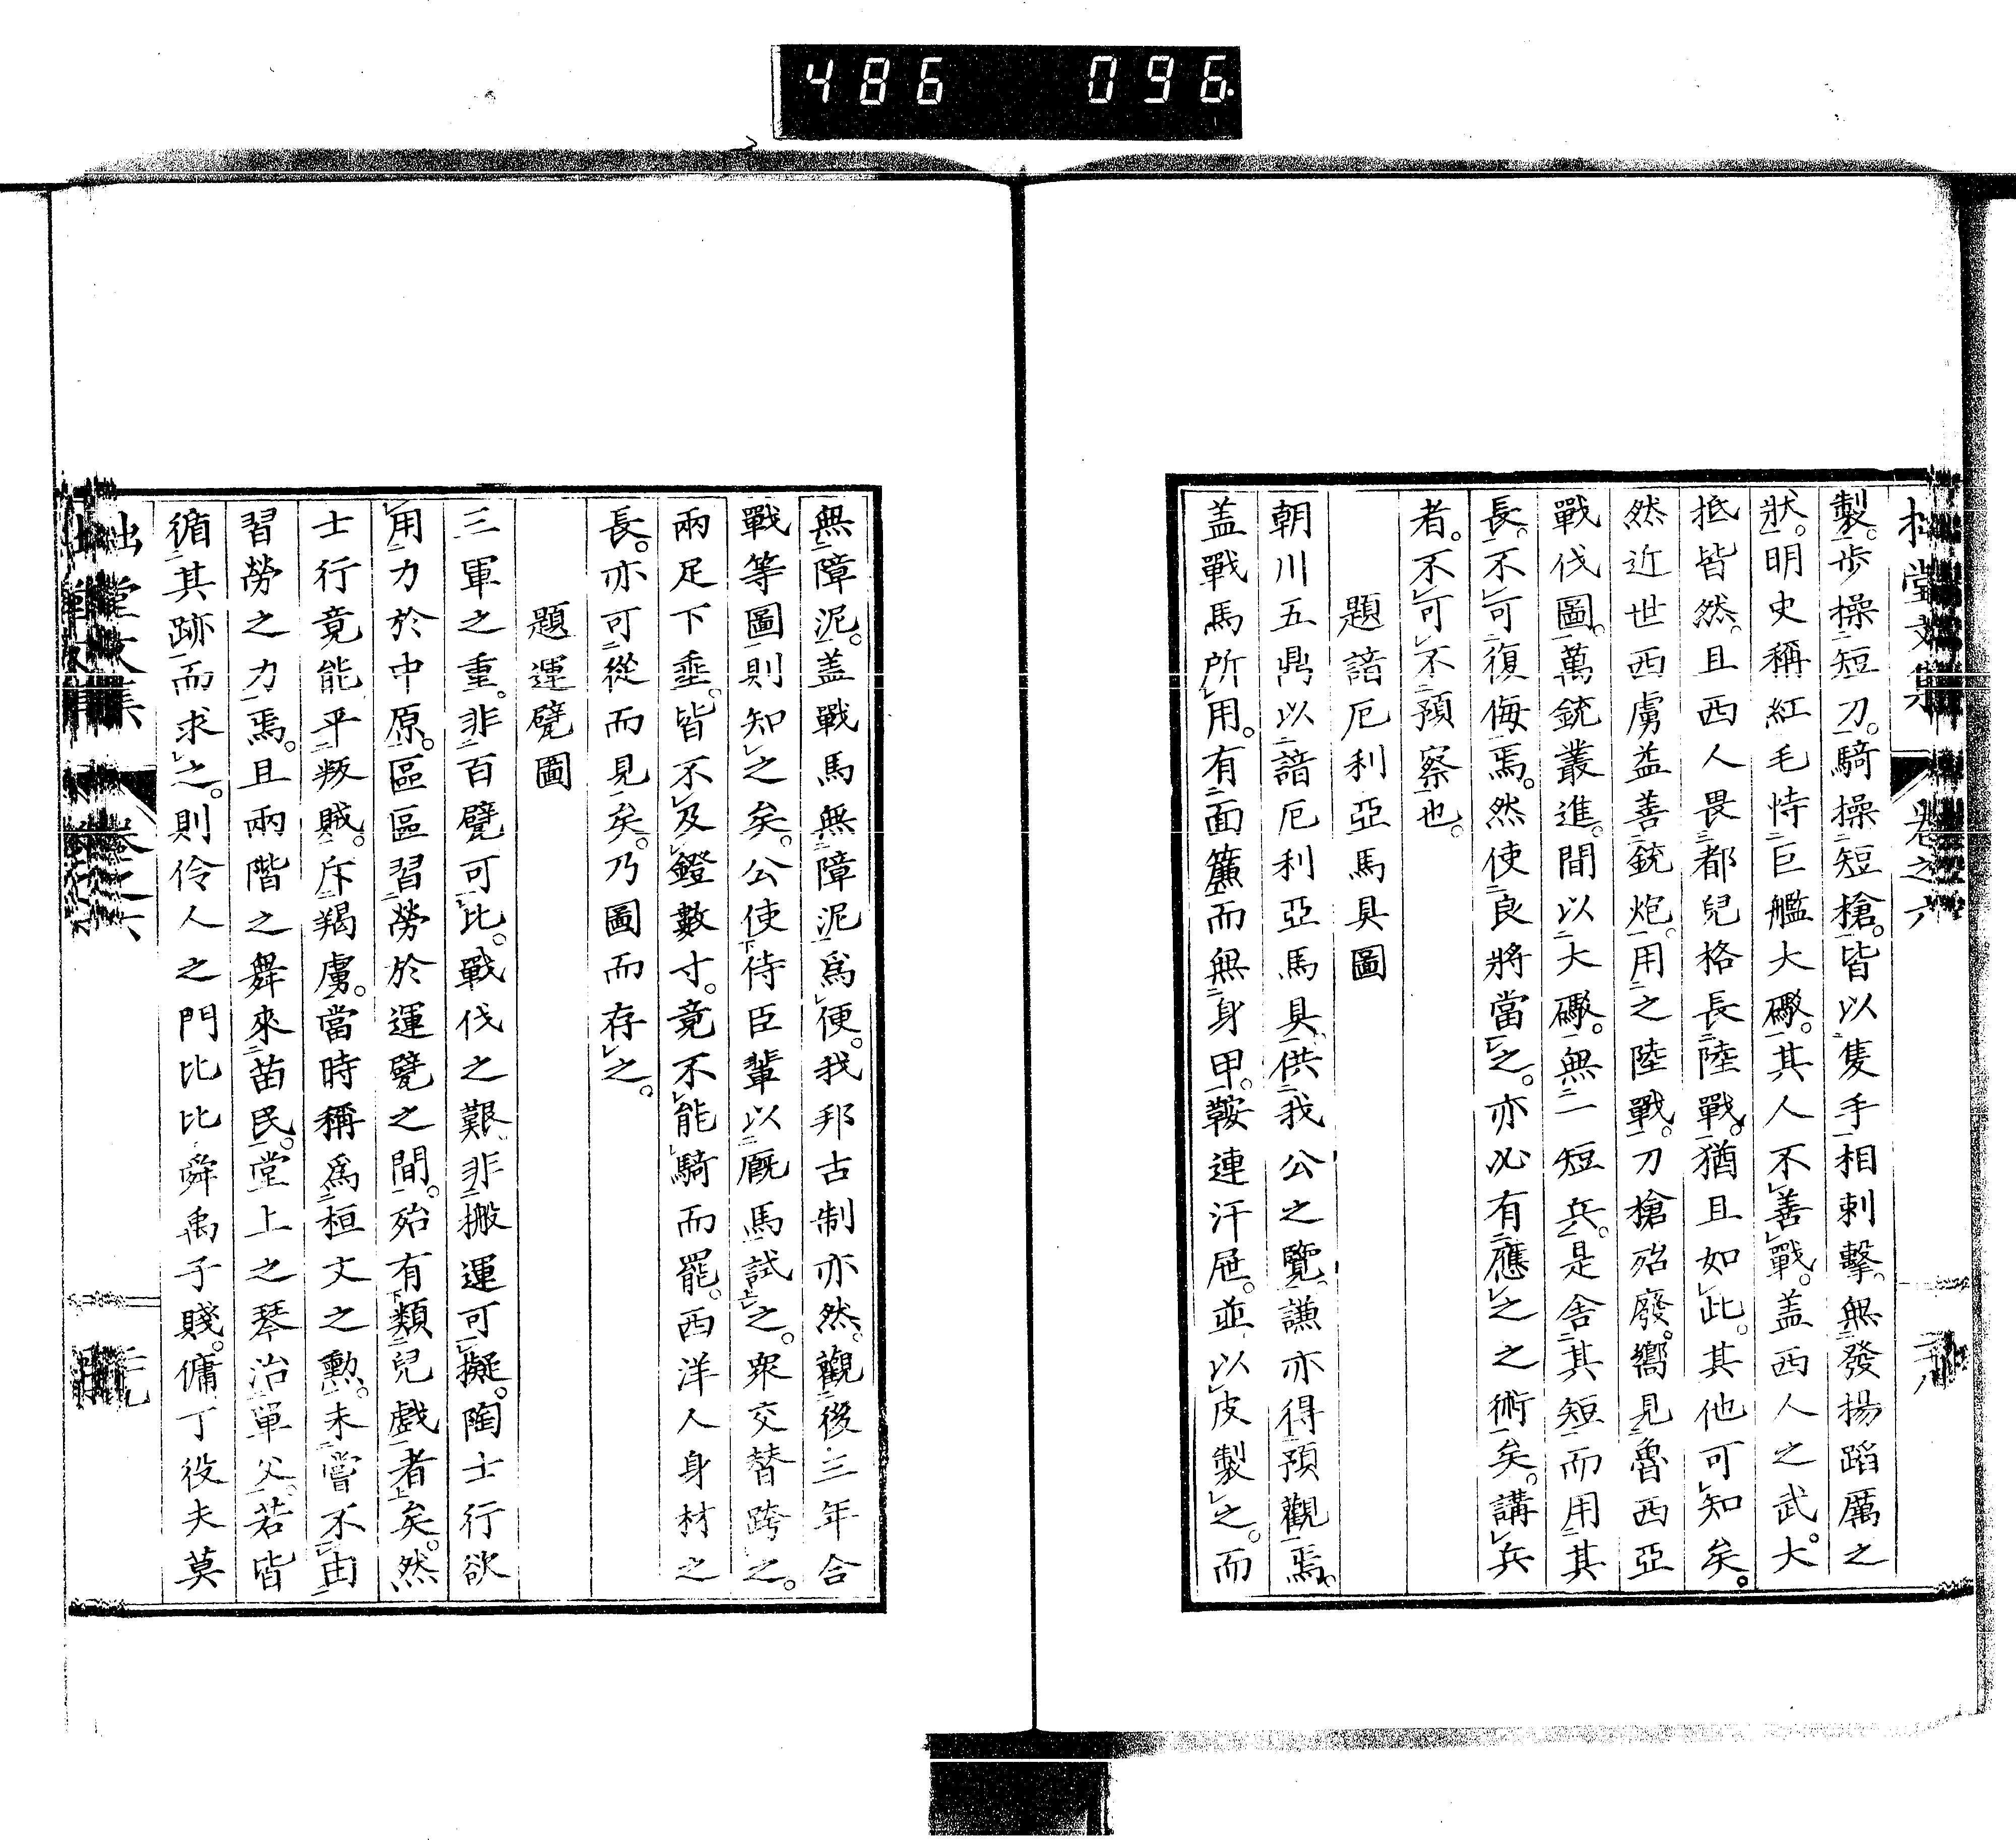 486 096
拙堂文集 卷之六 二十八
製。歩操短刀。騎操短槍。皆以隻手相刺擊。無發揚蹈厲之
狀。明史稱紅毛恃巨艦大礟。其人不善戰。盖西人之武。大
抵皆然。且西人畏都兒格長陸戰。猶且如此。其他可知矣。
然近世西虜益善銃炮。用之陸戰。刀槍殆廢。嚮見魯西亞
戰伐圖。萬銃叢進。間以大礟。無一短兵。是舍其短而用其
長。不可復侮焉。然使良將當之。亦必有應之之術矣。講兵
者。不可不預察也。
題諳厄利亞馬具圖
朝川五鼎以諳厄利亞馬具。供我公之覽。謙亦得預觀焉。
盖戰馬所用。有面簾而無身甲。鞍連汗屜。並以皮製之。而
無障泥。盖戰馬無障泥爲便。我邦古制亦然。觀後三年合
戰等圖則知之矣。公使侍臣輩以廐馬試之。衆交替跨之。
兩足下垂。皆不及鐙數寸。竟不能騎而罷。西洋人身材之
長。亦可從而見矣。乃圖而存之。
題運甓圖
三軍之重。非百甓可比。戰伐之艱。非搬運可擬。陶士行欲
用力於中原。區區習勞於運甓之間。殆有類兒戲者矣。然
士行竟能平叛賊。斥羯虜。當時稱爲桓文之勳。未嘗不由
習勞之力焉。且兩階之舞來苗民。堂上之琴治單父。若皆
循其跡而求之。則伶人之門比比舜禹子賤。傭丁役夫莫
拙堂文集 卷之六